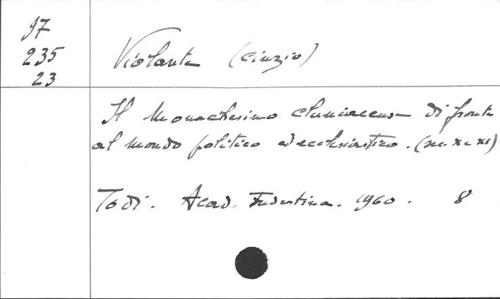 97
235
23
Violante (Cinzio)
Il Monachesimo cluniacense di fronte
al mondo politico ed ecclesiastico. (sec X e XI)
Todi. Acad. Tudertina. 1960. 8